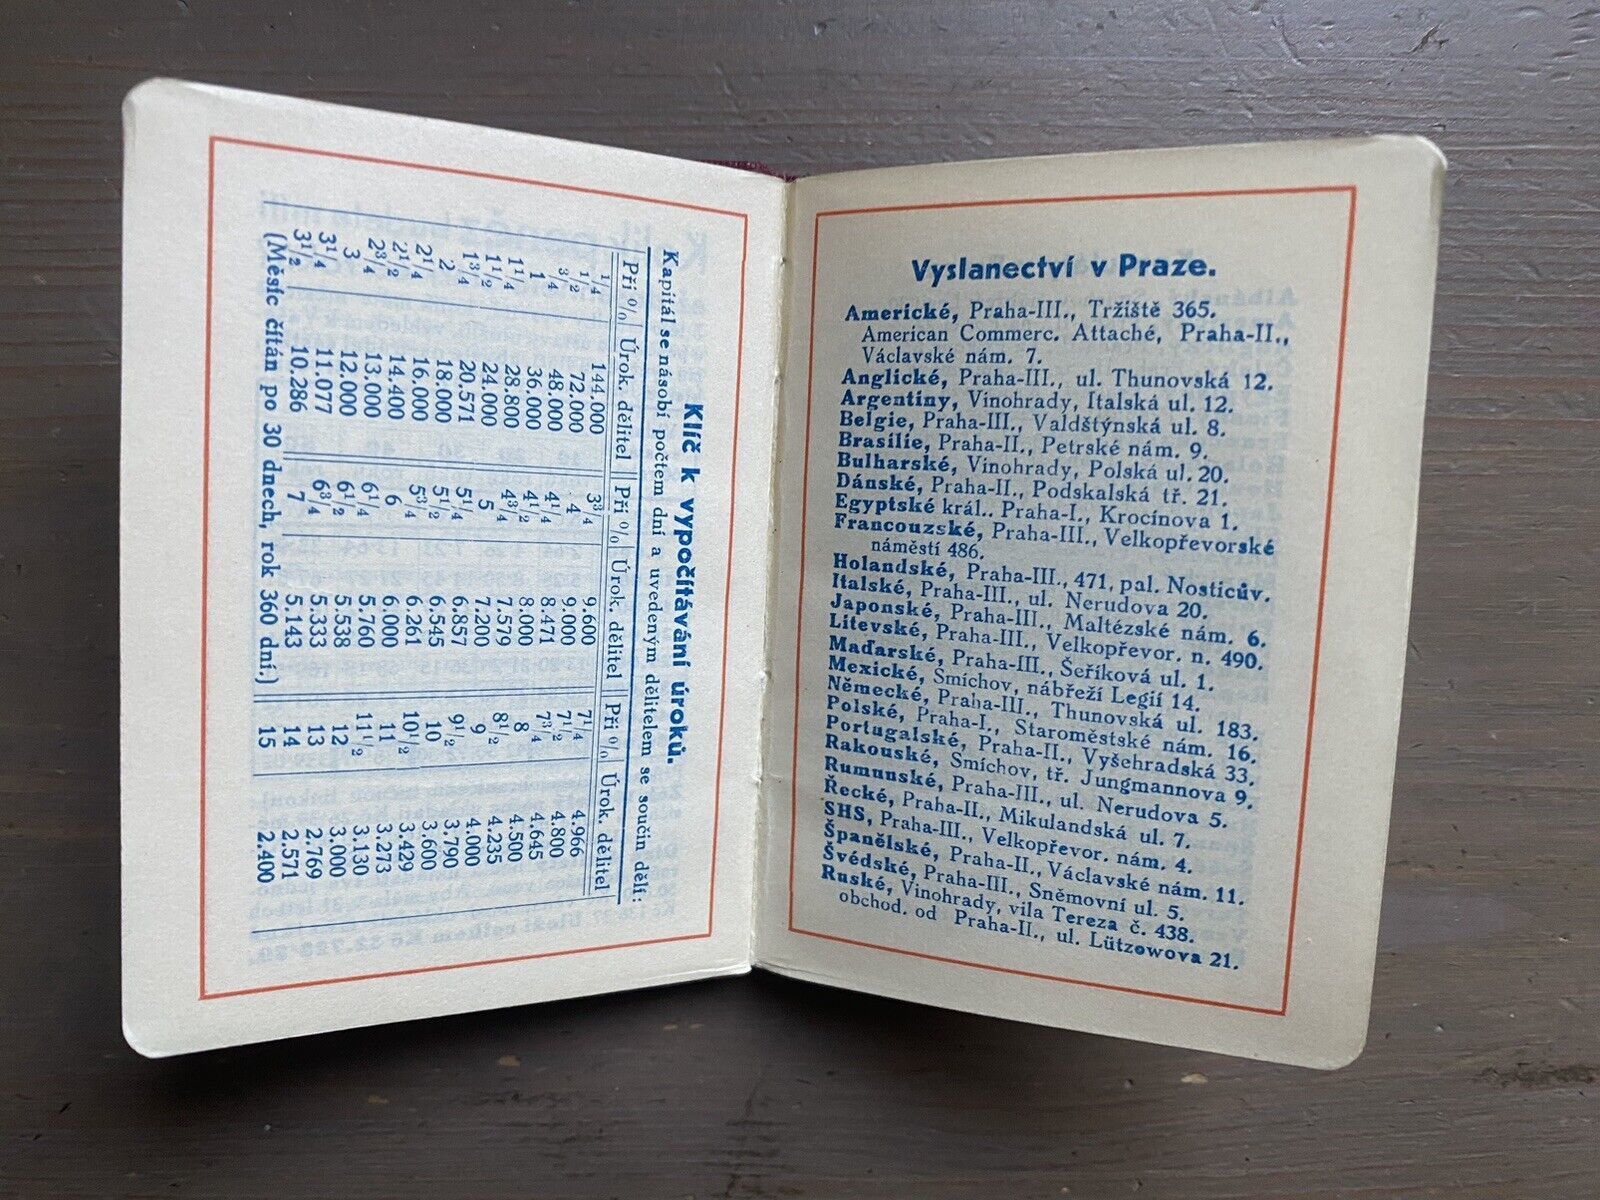 Klíč k vypočítávání úroků.
Kapitál se násobí počtem dní a uvedeným dělitelem se součin dělí:
Při % Úrok. dělitel Při % Úrok. dělitel Při % Úrok. dělitel
1/4 144.000 3 3/4 9.600 7 1/4 4.966
1/2 72.000 4 9.000 7 1/2 4.800
3/4 48.000 4 1/4 8.471 7 3/4 4.645
1 36.000 4 1/2 8.000 8 4.500
1 1/4 28.800 4 3/4 7.579 8 1/2 4.235
1 1/2 24.000 5 7.200 9 4.000
1 3/4 20.571 5 1/4 6.857 9 1/2 3.790
2 18.000 5 1/2 6.545 10 3.600
2 1/4 16.000 5 3/4 6.261 10 1/2 3.429
2 1/2 14.400 6 6.000 11 3.273
2 3/4 13.000 6 1/4 5.760 11 1/2 3.130
3 12.000 6 1/2 5.538 12 3.000
3 1/4 11.077 6 3/4 5.333 13 2.769
3 1/2 10.286 7 5.143 14 2.571
15 2.400
(Měsíc čítán po 30 dnech, rok 360 dní.)
Vyslanectví v Praze.
Americké, Praha-III., Tržiště 365.
American Commerc. Attaché, Praha-II.,
Václavské nám. 7.
Anglické, Praha-III., ul. Thunovská 12.
Argentiny, Vinohrady, Italská ul. 12.
Belgie, Praha-III., Valdštýnská ul. 8.
Brasilie, Praha-II., Petrské nám. 9.
Bulharské, Vinohrady, Polská ul. 20.
Dánské, Praha-II., Podskalská tř. 21.
Egyptské král.. Praha-I., Krocínova 1.
Francouzské, Praha-III., Velkopřevorské
náměstí 486.
Holandské, Praha-III., 471, pal. Nosticův.
Italské, Praha-III., ul. Nerudova 20.
Japonské, Praha-III., Maltézské nám. 6.
Litevské, Praha-III., Velkopřevor. n. 490.
Maďarské, Praha-III., Šeříková ul. 1.
Mexické, Smíchov, nábřeží Legií 14.
Německé, Praha-III., Thunovská ul. 183.
Polské, Praha-I., Staroměstské nám. 16.
Portugalské, Praha-II., Vyšehradská 33.
Rakouské, Smíchov, tř. Jungmannova 9.
Rumunské, Praha-III., ul. Nerudova 5.
Řecké, Praha-II., Mikulandská ul. 7.
SHS, Praha-III., Velkopřevor. nám. 4.
Španělské, Praha-II., Václavské nám. 11.
Švédské, Praha-III., Sněmovní ul. 5.
Ruské, Vinohrady, vila Tereza č. 438.
obchod. od Praha-II., ul. Lützowova 21.